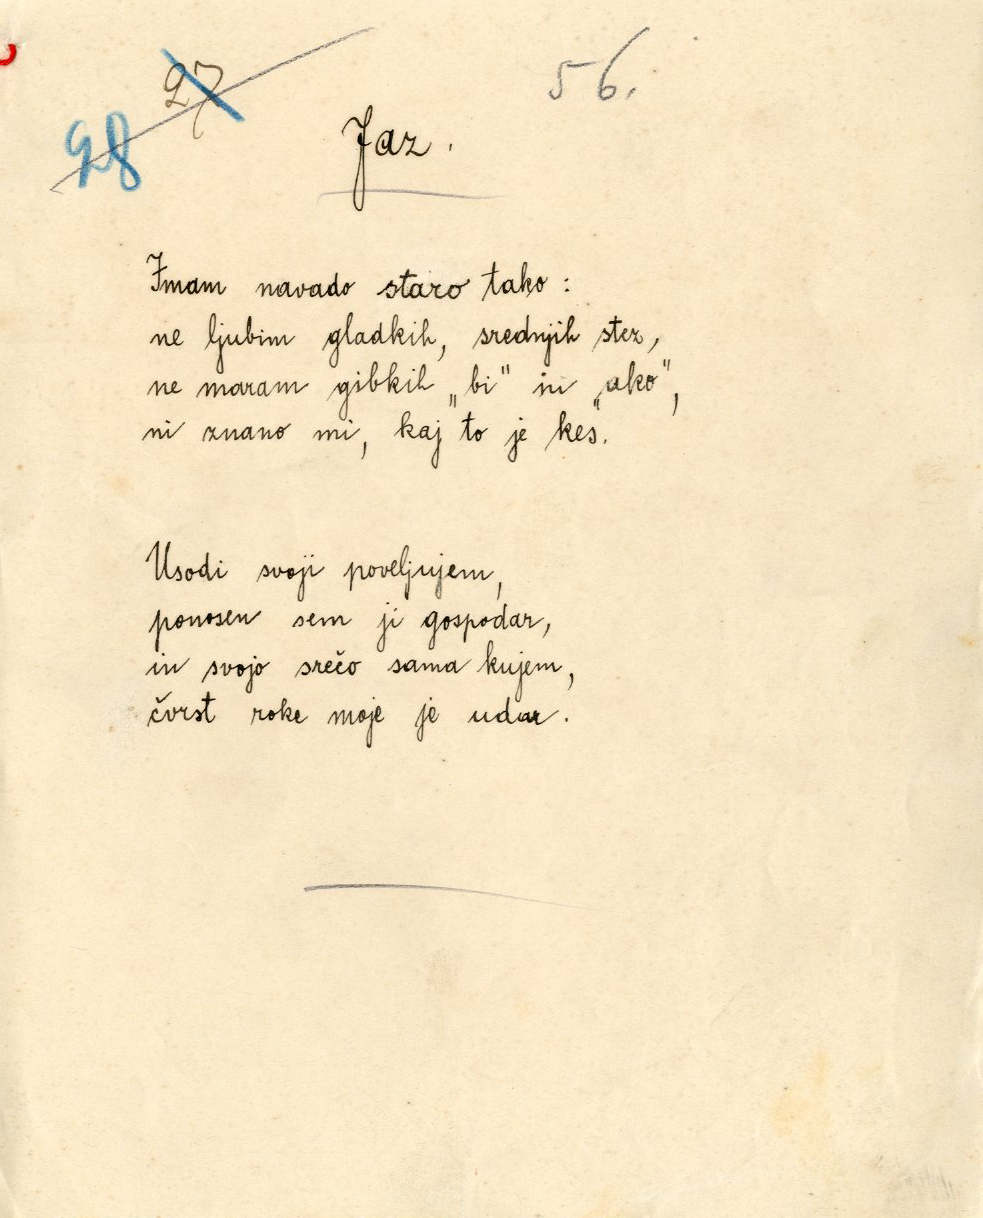 27
56.
28
Jaz.
Imam navado staro tako:
ne ljubim gladkih, srednjih stez,
ne maram gibkih „bi" in „ako",
ni znano mi, kaj to je kes.
Usodi svoji poveljujem,
ponosen sem ji gospodar,
in svojo srečo sama kujem,
čvrst roke moje je udar.